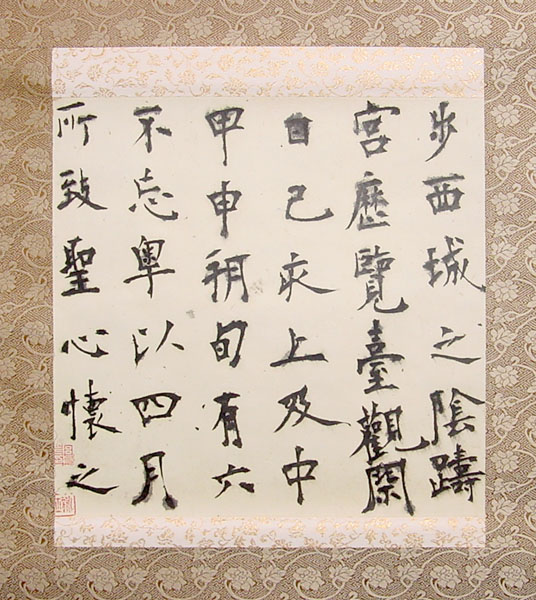 所致聖心懷之
不忘粵以四月
甲申朔旬有六
日己亥上及中
宮歷覽臺觀閑
步西城之陰躊